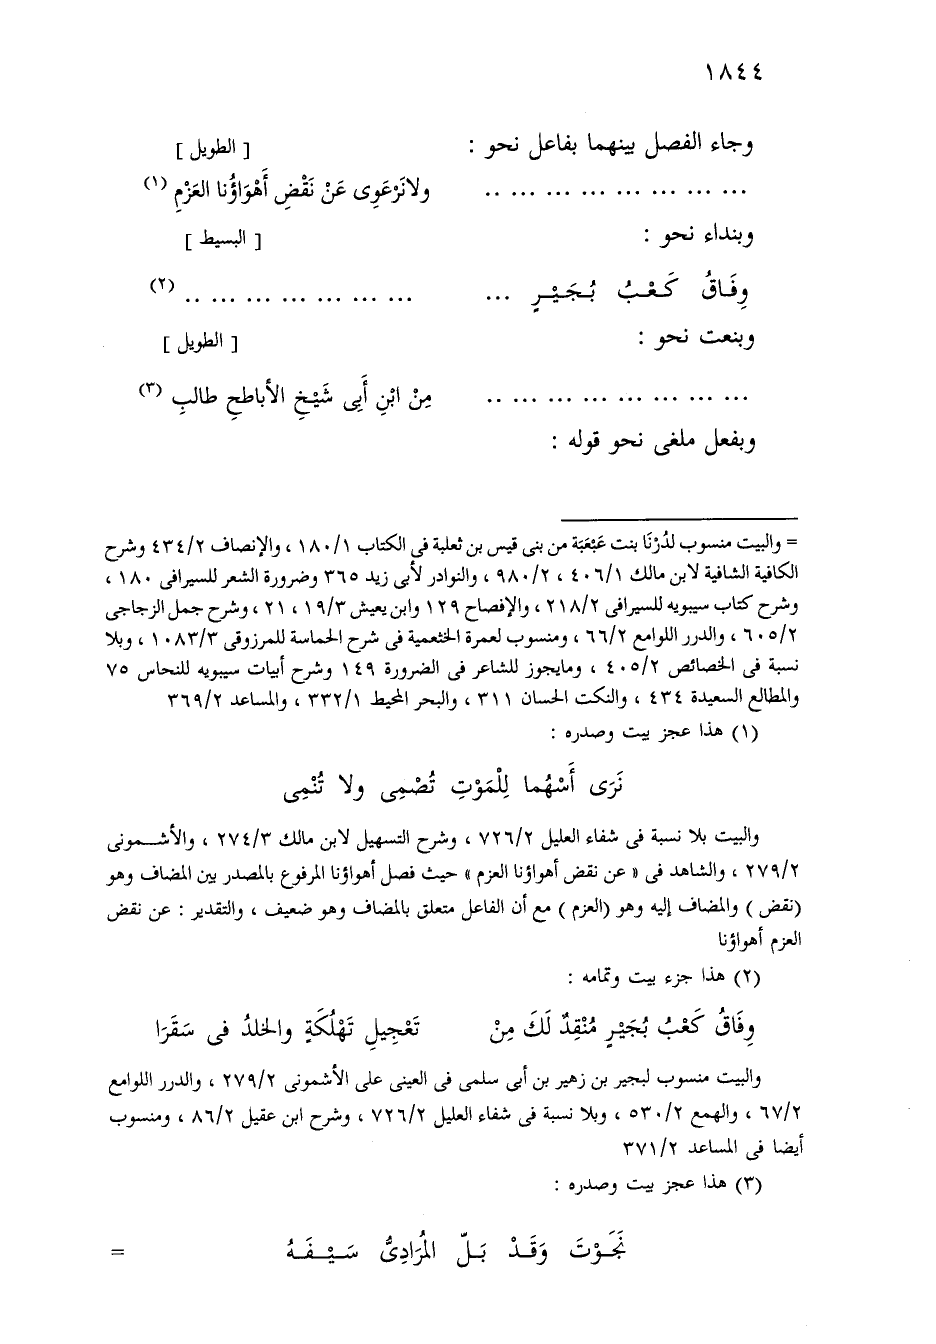 ١٨٤٤
وجاء الفصل بينهما بفاعل نحو : [ الطويل ]
... ... ... ... ... ... ... .. ولانَرْعَوِى عَنْ نَقْضِ أَهْوَاؤُنا العَزْمِ (١)
وبنداء نحو : [ البسيط ]
وِفَاقُ كَعْبُ بُجَيْرٍ ... ... ... ... ... ... ... ... .. (٢)
وبنعت نحو : [ الطويل ]
... ... ... ... ... ... ... .. مِنْ ابْنِ أَبِى شَيْخِ الأباطحِ طالبِ (٣)
وبفعل ملغى نحو قوله :
= والبيت منسوب لدُرْنَا بنت عَبْعَبَة من بنى قيس بن ثعلبة فى الكتاب ١٨٠/١ ، والإنصاف ٤٣٤/٢ وشرح
الكافية الشافية لابن مالك ٤٠٦/١ ، ٩٨٠/٢ ، والنوادر لأبى زيد ٣٦٥ وضرورة الشعر للسيرافى ١٨٠ ،
وشرح كتاب سيبويه للسيرافى ٢١٨/٢ ، والإفصاح ١٢٩ وابن يعيش ١٩/٣ ، ٢١ ، وشرح جمل الزجاجى
٦٠٥/٢ ، والدرر اللوامع ٦٦/٢ ، ومنسوب لعمرة الخثعمية فى شرح الحماسة للمرزوقى ١٠٨٣/٣ ، وبلا
نسبة فى الخصائص ٤٠٥/٢ ، ومايجوز للشاعر فى الضرورة ١٤٩ وشرح أبيات سيبويه للنحاس ٧٥
والمطالع السعيدة ٤٣٤ ، والنكت الحسان ٣١١ ، والبحر المحيط ٣٣٢/١ ، والمساعد ٣٦٩/٢
(١) هذا عجز بيت وصدره :
نَرَى أَسْهُما لِلْمَوْتِ تُصْمِى ولا تُنْمِى
والبيت بلا نسبة فى شفاء العليل ٧٢٦/٢ ، وشرح التسهيل لابن مالك ٢٧٤/٣ ، والأشـمونى
٢٧٩/٢ ، والشاهد فى « عن نقض أهواؤنا العزم » حيث فصل أهواؤنا المرفوع بالمصدر بين المضاف وهو
(نقض ) والمضاف إليه وهو (العزم ) مع أن الفاعل متعلق بالمضاف وهو ضعيف ، والتقدير : عن نقض
العزم أهواؤنا
(٢) هذا جزء بيت وتمامه :
وِفَاقُ كَعْبُ بُجَيْرٍ مُنْقِدٌ لَكَ مِنْ تَعْجِيلِ تَهْلُكَةٍ والخلدُ فى سَقَرَا
والبيت منسوب لبجير بن زهير بن أبى سلمى فى العينى على الأشمونى ٢٧٩/٢ ، والدرر اللوامع
٦٧/٢ ، والهمع ٥٣٠/٢ ، وبلا نسبة فى شفاء العليل ٧٢٦/٢ ، وشرح ابن عقيل ٨٦/٢ ، ومنسوب
أيضا فى المساعد ٣٧١/٢
(٣) هذا عجز بيت وصدره :
نَجَوْتَ وَقَدْ بَلّ المُرَادِىُّ سَيْفَهُ =